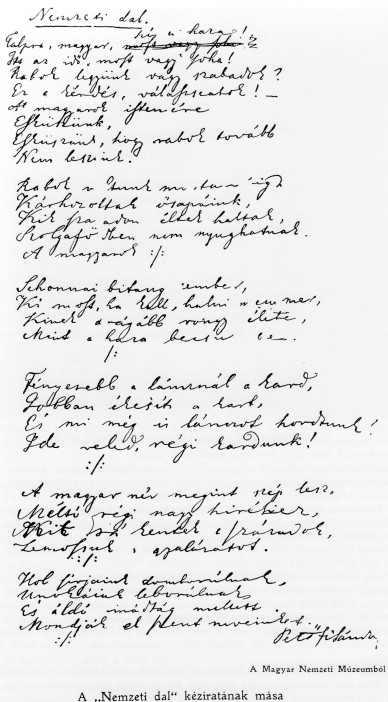 Nemzeti dal.
hí a haza!
Talpra, magyar, most vagy soha!
Itt az idő, most vagy soha!
Rabok legyünk vagy szabadok?
Ez a kérdés, válasszatok! –
A magyarok istenére
Esküszünk,
Esküszünk, hogy rabok tovább
Nem leszünk.
Rabok voltunk mostanáig,
Kárhozottak ősapáink,
Kik szabadon éltek haltak,
Szolgaföldben nem nyughatnak.
A magyarok :/:
Sehonnai bitang ember,
Ki most, ha kell, halni nem mer,
Kinek drágább rongy élete,
Mint a haza becsülete.
:/:
Fényesebb a láncnál a kard,
Jobban ékesíti a kart,
És mi még is láncot hordtunk!
Ide veled, régi kardunk!
:/:
A magyar név megint szép lesz,
Méltó régi nagy hiréhez,
Mit rá kentek a századok,
Lemossuk a gyalázatot.
:/:
Hol sírjaink domborúlnak,
Unokáink leborúlnak,
És áldó imádság mellett
Mondják el szent neveinket.
:/:
Petőfi Sándor
A Magyar Nemzeti Múzeumból
A „Nemzeti dal" kéziratának mása